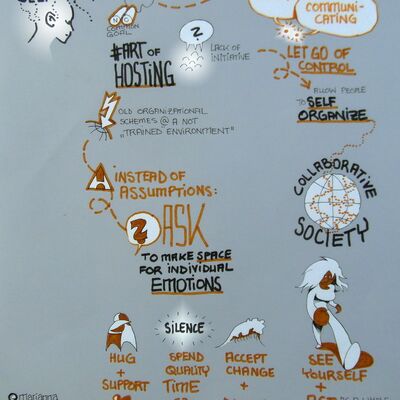 COMMUNI-
CATING
NO
COMMON
GOAL
#ART OF
HOSTING
?
LACK OF
INITIATIVE
LET GO OF
CONTROL
ALLOW PEOPLE
TO SELF
ORGANIZE
OLD ORGANIZATIONAL
SCHEMES @ A NOT
„TRAINED ENVIRONMENT"
COLLABORATIVE
SOCIETY
INSTEAD OF
ASSUMPTIONS:
? ASK
TO MAKE SPACE
FOR INDIVIDUAL
EMOTIONS
HUG
+
SUPPORT
SILENCE
SPEND
QUALITY
TIME
+
ACCEPT
CHANGE
+
SEE
YOURSELF
+
marianna